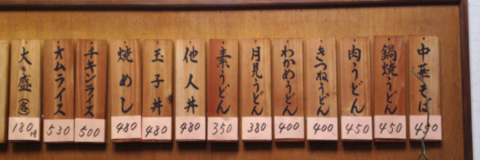 中華そば
450
鍋焼うどん
450
肉うどん
450
きつねうどん
400
わかめうどん
400
月見うどん
380
素うどん
350
他人丼
480
玉子丼
480
焼めし
480
チキンライス
500
オムライス
530
大盛
180円